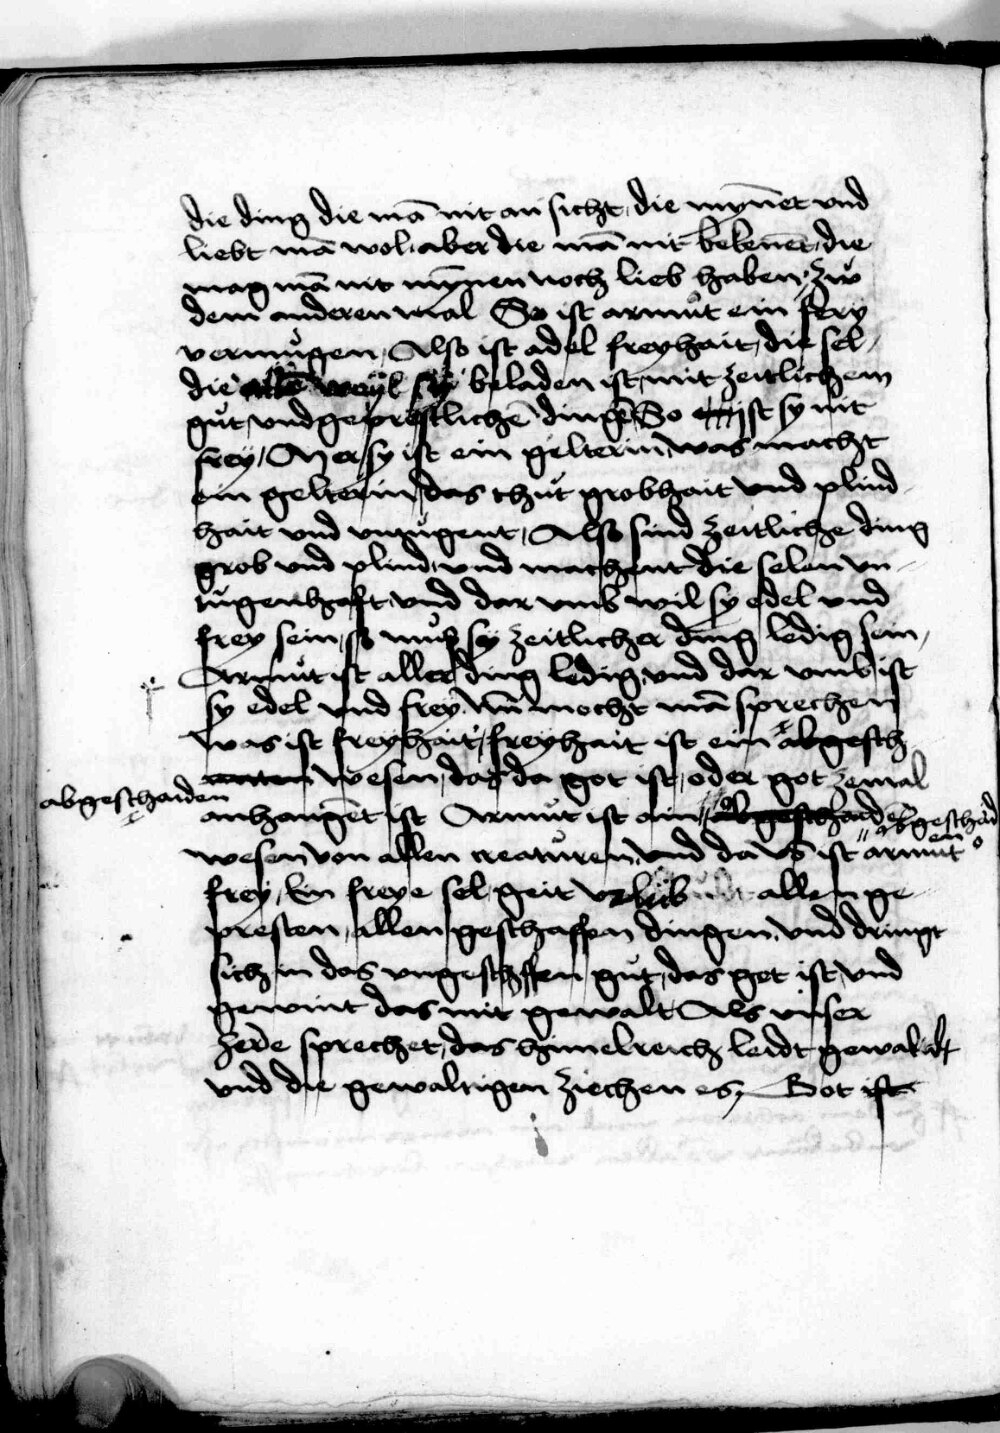 die ding die mā nit an sicht, die mynēt vnd
liebt mā wol, aber die mā nit bekenēt, die
mag mā nit mÿnen noch lieb haben, zw
dem anderen mal So ist armůt ein frey
vermůgen, Also ist adel freyhait, die sel
die weyl sy beladen ist, mit zeitlichem
gůt, vnd geprestlichē dingē So ist sy nit
frey, Mer sy ist ein gelterin, was macht
ein gelterin, das thůt grobhait vnd plind
hait vnd vntůgent, Also sind zeitliche ding
grob vnd plind, vnd machent die selen vn
tůgenhaft, vnd dar vmb wil sy edel vnd
frey sein, so můß sy zeitlicher ding ledig sein,
Armůt ist aller ding ledig, vnd dar vmb ist
sy edel vnd frey, Nū mocht mā sprechen
was ist freyhait, freyhait ist ein abgesch
wesen, das da got ist, oder got zemal
abgeschaiden
anhangēt ist Armůt ist ein abgeschaiden abgeschaid
en
wesen von allen creatůren, vnd da vō ist armůt
frey, Ein freye sel, geit vrlůb allen ge
presten, allen geschaffen dingen, vnd dringt
sich in das vngeschffen gůt, das got ist, vnd
gewint das mit gewalt Als vnser
herre sprechet, das himelreich leidt gewalt
vnd die gewaltigen ziechen es, Got ist